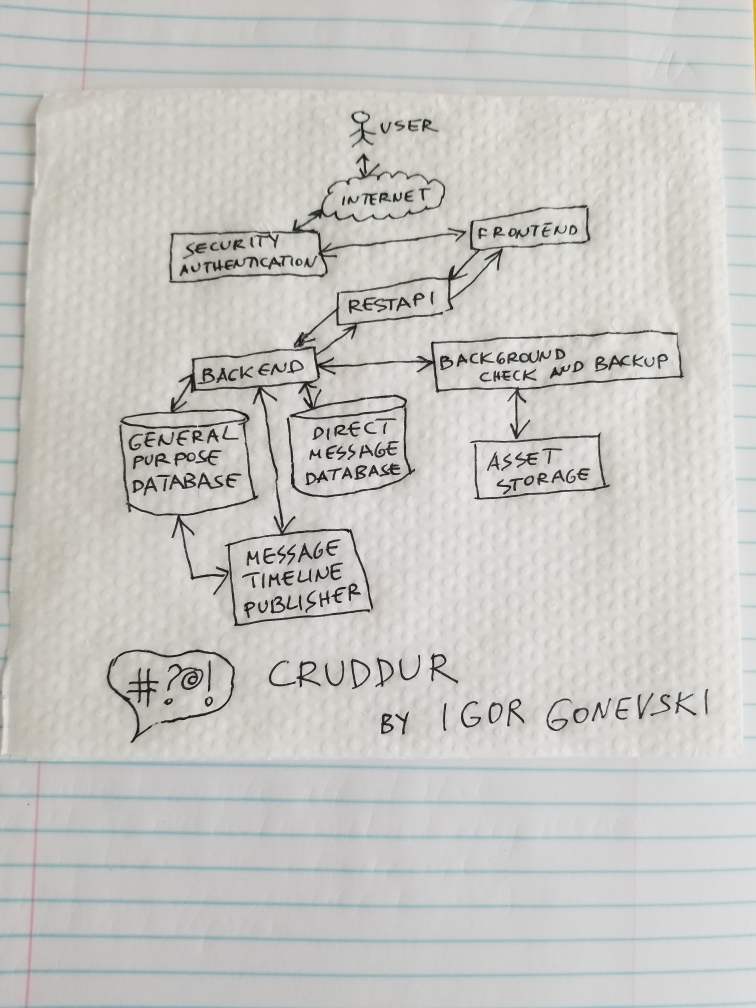 USER
INTERNET
SECURITY
AUTHENTICATION
FRONTEND
RESTAPI
BACKEND
BACKGROUND
CHECK AND BACKUP
GENERAL
PURPOSE
DATABASE
DIRECT
MESSAGE
DATABASE
ASSET
STORAGE
MESSAGE
TIMELINE
PUBLISHER
#?@!
CRUDDUR
BY IGOR GONEVSKI